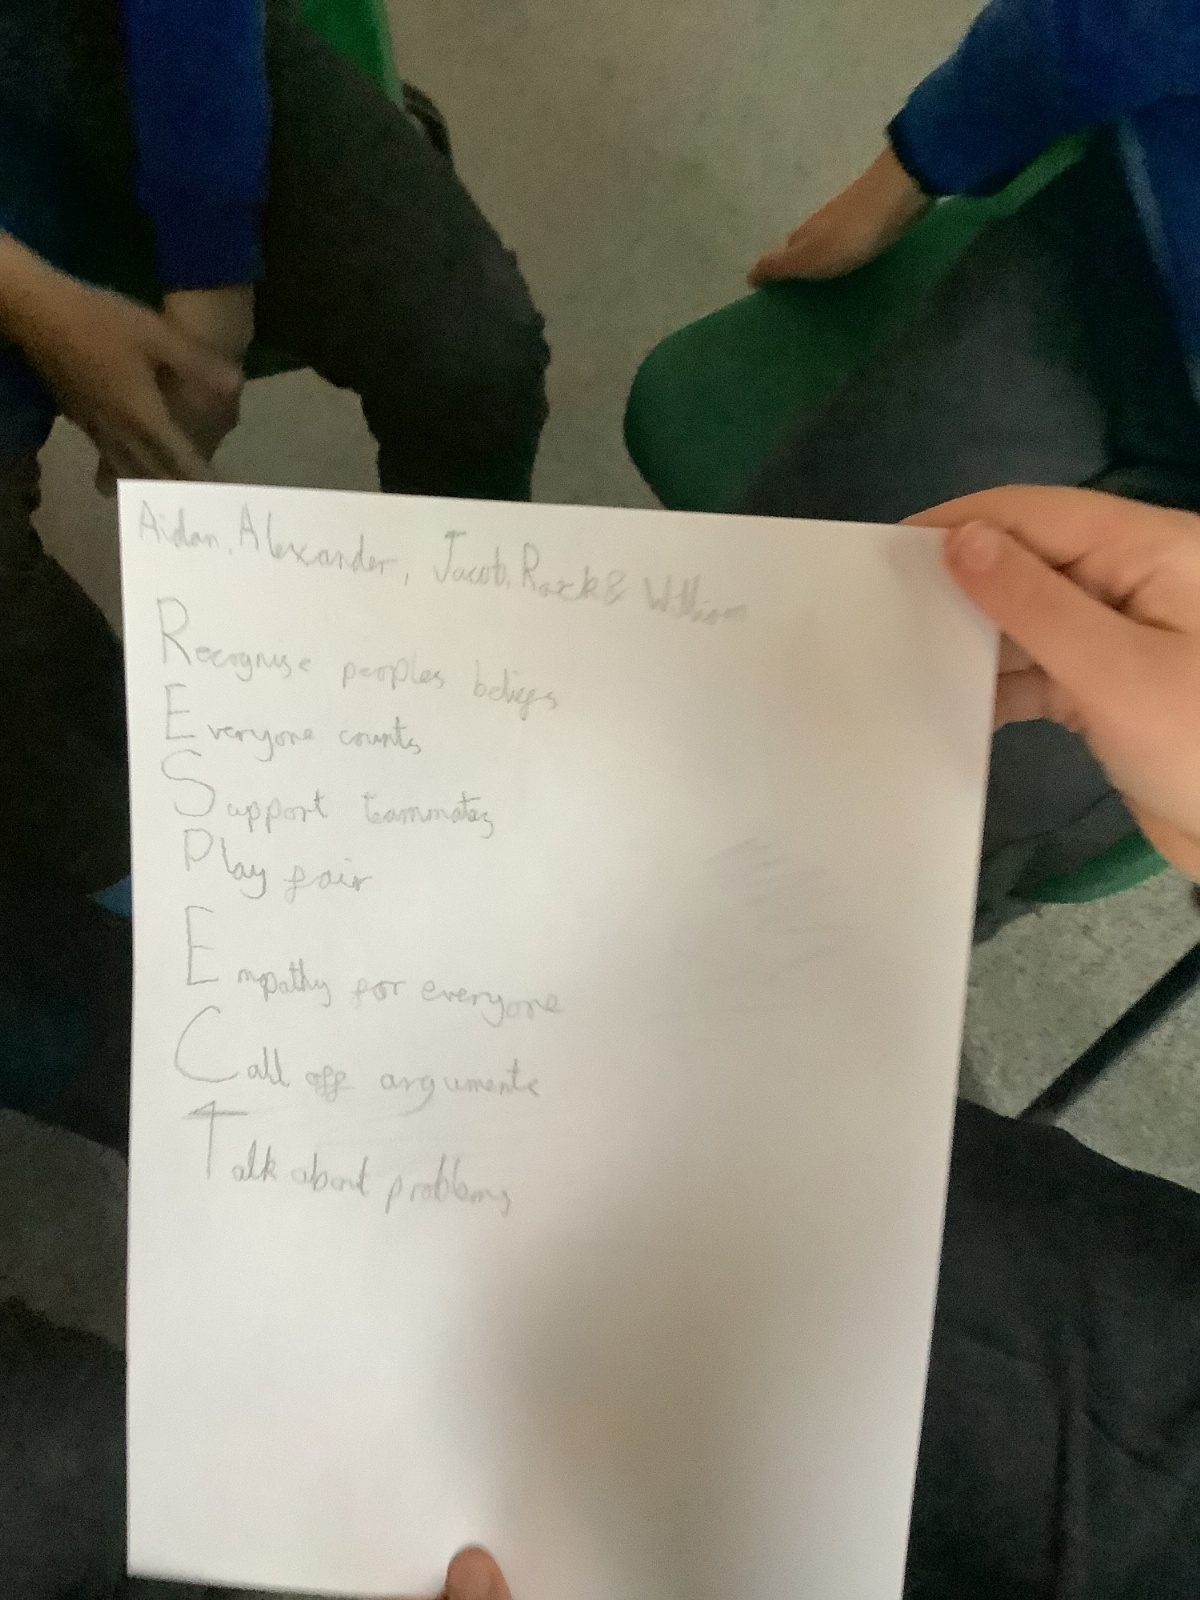 Aidan, Alexander, Jacob, & William
Recognise peoples beliefs
Everyone counts
Support teammates
Play fair
Empathy for everyone
Call off arguments
Talk about problems